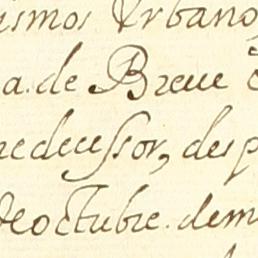 ismos Vrbano,
a. de Breue
redecessor, desp
de octubre. dem